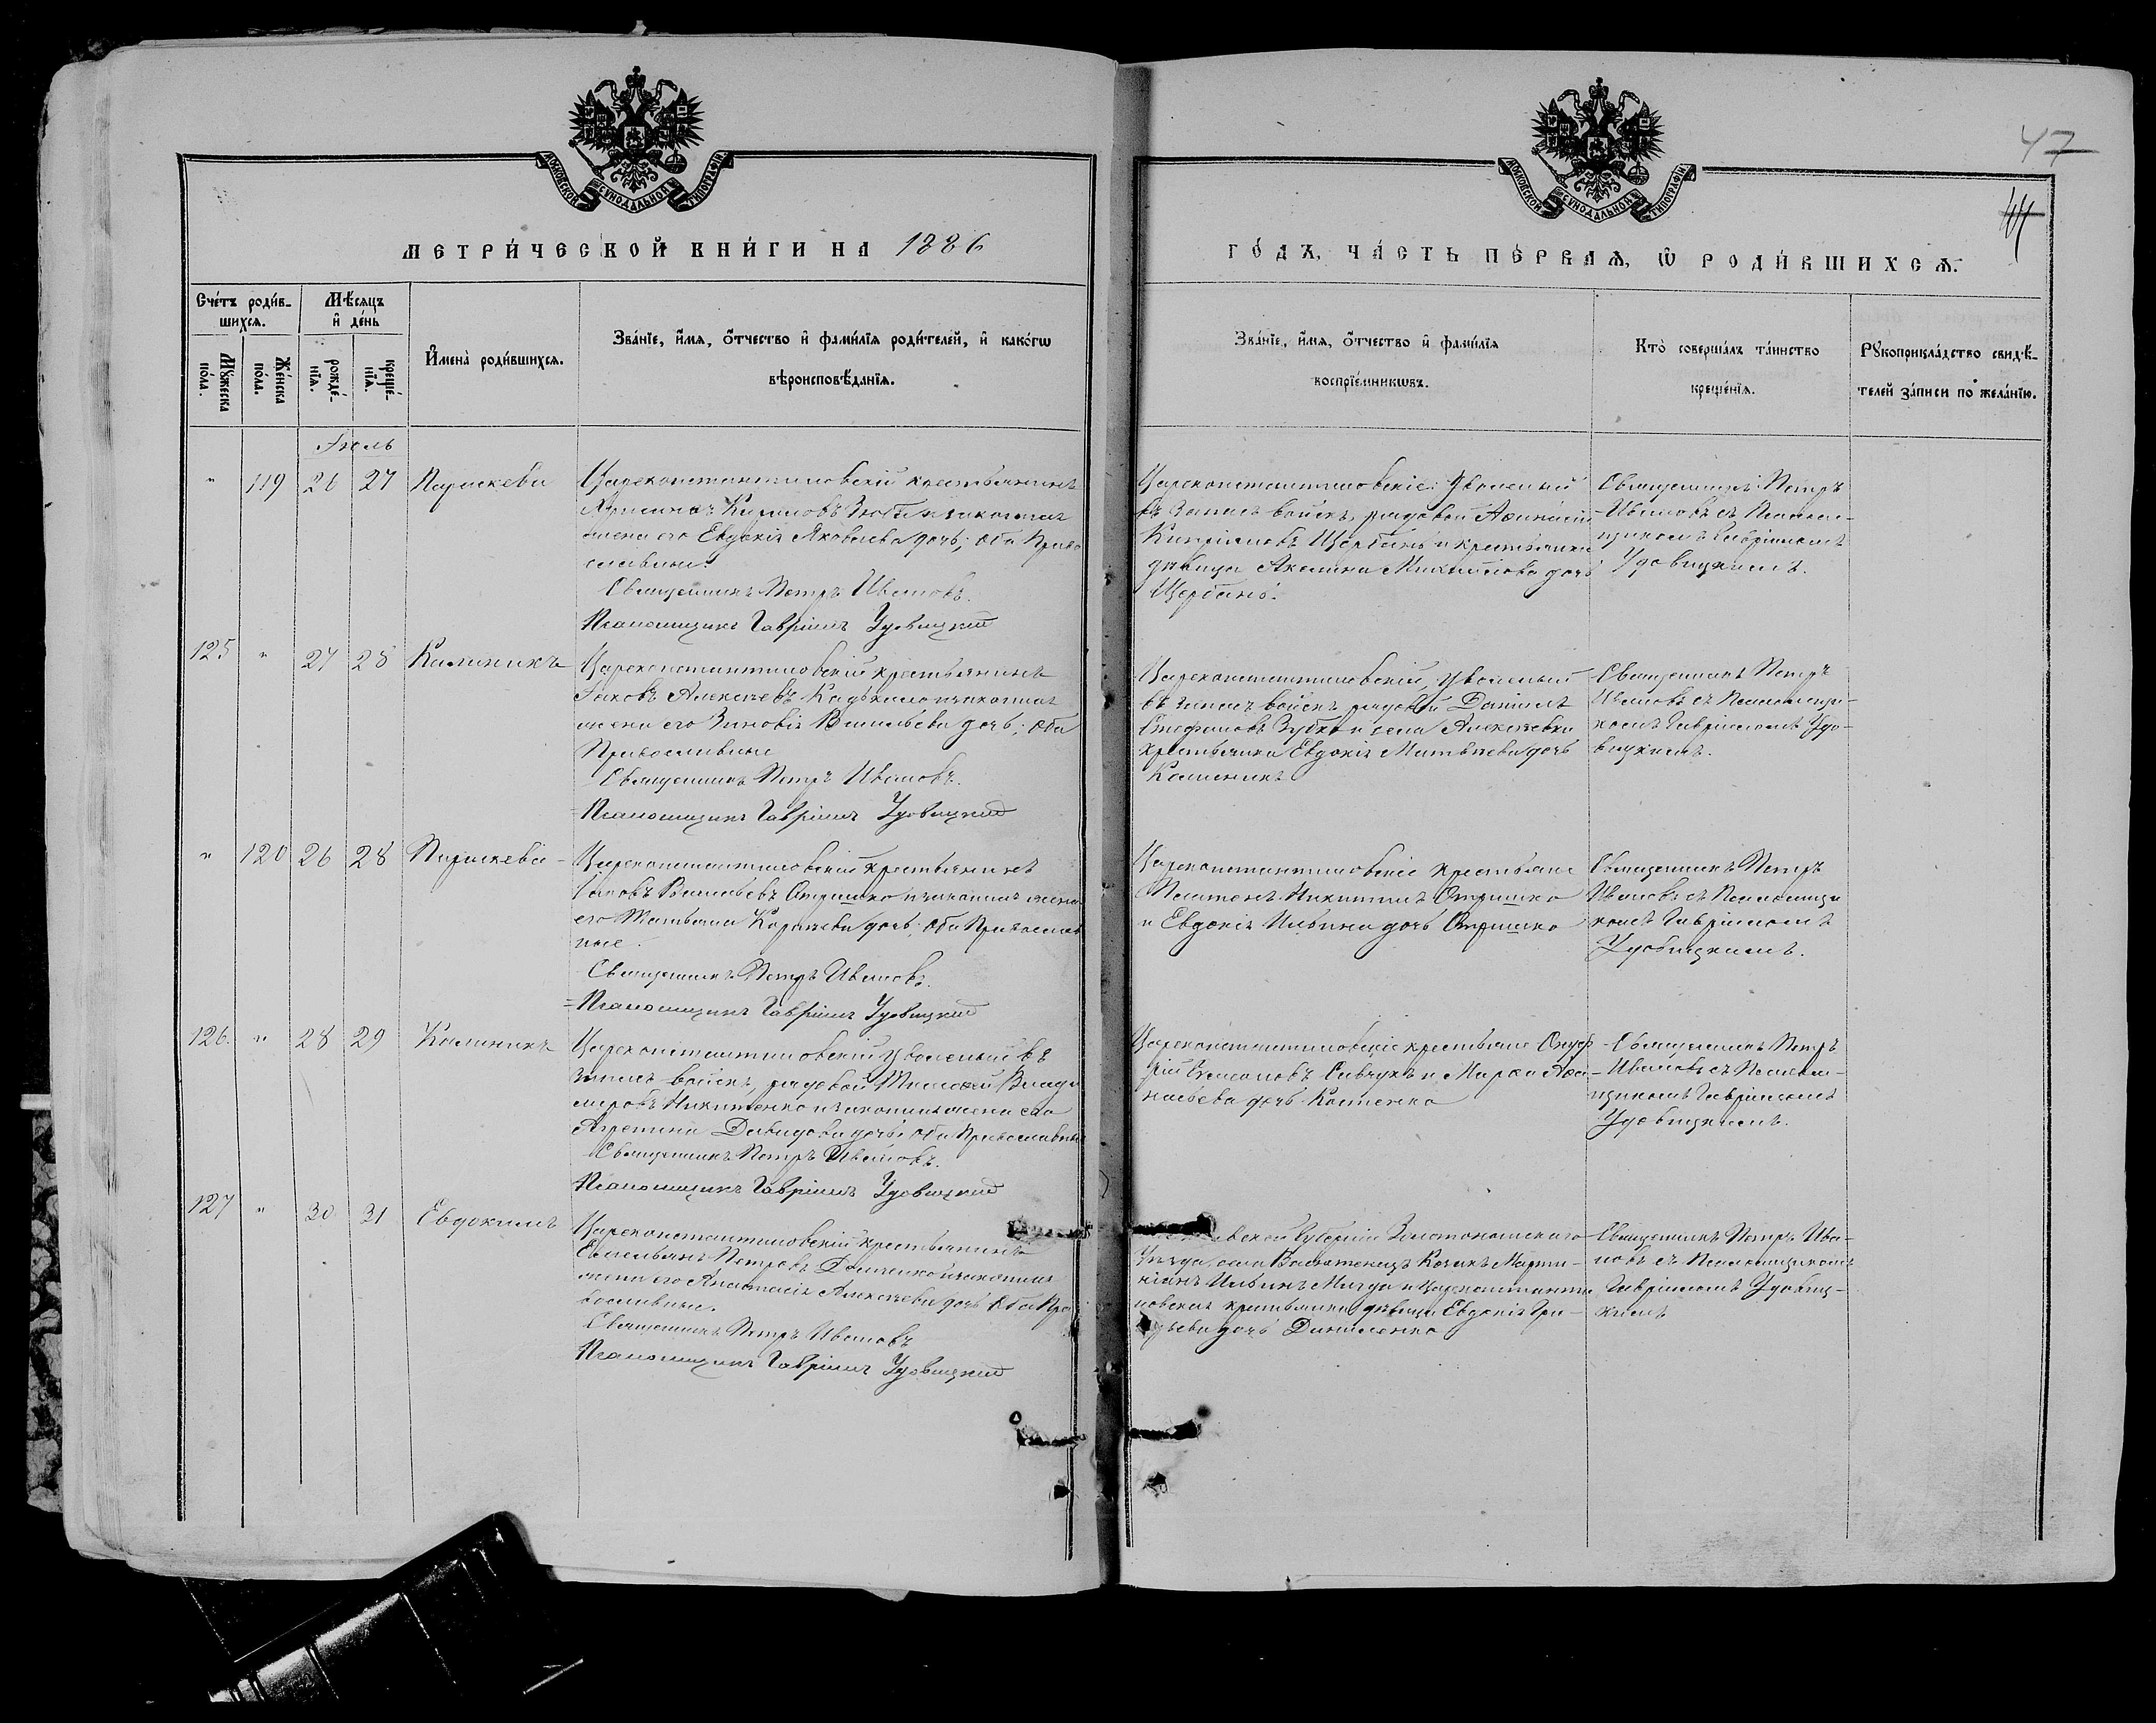 47
44
МОСКОВСКОЙ СѴНОДАЛЬНОЙ ТИПОГРАФІИ
МОСКОВСКОЙ СѴНОДАЛЬНОЙ ТИПОГРАФІИ
МЕТРИ́ЧЕСКОЙ КНИ́ГИ НА 1886
ГО́ДЪ, ЧА́СТЬ ПЕ́РВАѦ, Ѡ РОДИ́ВШИХСѦ.
Сче́тъ роди́в-
шихсѧ.
Мꙋ́жеска
по́ла.
Же́нска
по́ла.
Мѣ́сѧцъ
и҆ де́нь
рожде́-
нїѧ.
креще́-
нїѧ.
И҆мена̀ роди́вшихсѧ.
Зва́нїе, и҆́мѧ, ѻ҆́тчество и҆ фами́лїѧ роди́телей, и҆ како́гѡ
вѣроисповѣ́данїѧ.
Зва́нїе, и҆́мѧ, ѻ҆́тчество и҆ фами́лїѧ
воспрїе́мникѡвъ.
Кто̀ соверша́лъ та́инство
креще́нїѧ.
Рꙋкоприкла́дство свидѣ́-
телей за́писи по жела́нїю.
Іюль
" 119 26 27 Параскева
Цареконстантиновскій крестьянинъ
Кириловъ Зюба и законная
жена его Евдокія Яковлева дочь; оба Право
славные.
Священникъ Петръ Ивановъ.
Псаломщикъ Гавріилъ Удовицкій
Цареконстантиновскіе: уволеный
въ запасъ войскъ, рядовой Афанасій
Кипріановъ Щербань и крестьянка
дѣвица Акилина Михайлова дочь
Щербань.
Священникъ Петръ
Ивановъ съ Псалом-
щикомъ Гавріиломъ
Удовицкимъ.
125 " 27 28 Калиникъ
Цареконстантиновскій крестьянинъ
Іаковъ Алексѣевъ и законная
жена его Зиновія Васильева дочь; оба
Православные
Священникъ Петръ Ивановъ.
Псаломщикъ Гавріилъ Удовицкій
Цареконстантиновскій уволеный
въ запасъ войскъ рядовой Даніилъ
Стефановъ Зубко и села Алексѣевки
крестьянка Евдокія Матѳѣева дочь
Калиникъ
Священникъ Петръ
Ивановъ съ Псаломщи-
комъ Гавріиломъ Удо-
вицкимъ.
" 120 26 28 Параскева
Цареконстантиновскій крестьянинъ
Іаковъ Васильевъ Отришко и законная жена
его Татьяна дочь; оба Православ
ные.
Священникъ Петръ Ивановъ.
Псаломщикъ Гавріилъ Удовицкій
Цареконстантиновскіе крестьяне
Никитинъ Отришко
и Евдокія Ильина дочь Отришко
Священникъ Петръ
Ивановъ съ Псаломщи
комъ Гавріиломъ
Удовицкимъ.
126. " 28 29 Калиникъ
Цареконстантиновскій уволеный въ
запасъ войскъ, рядовой Тимофей Влади
міровъ Никитенко и законная жена его
Агрепина Давидова дочь; оба Православные
Священникъ Петръ Ивановъ.
Псаломщикъ Гавріилъ Удовицкій
Цареконстантиновскіе крестьяне Онуф
рій Савчукъ и Марфа Афа
насьева дочь Костенко
Священникъ Петръ
Ивановъ съ Псалом-
щикомъ Гавріиломъ
Удовицкимъ.
127 " 30 31 Евдокимъ
Цареконстантиновскій крестьянинъ
Емельянъ Петровъ и законная
жена его Анастасія Алексѣева дочь Оба Пра
вославные.
Священникъ Петръ Ивановъ
Псаломщикъ Гавріилъ Удовицкій
Губерніи Золотоношскаго
Уѣзда, села Козакъ Марти-
ніанъ Ильинъ и Цареконстанти
новская крестьянка дѣвица Евдокія Гри-
дочь Даниленко
Священникъ Петръ Ива-
новъ съ Псаломщикомъ
Гавріиломъ Удовиц-
кимъ